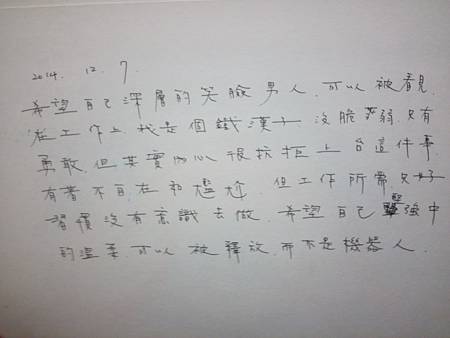 2014. 12. 7.
希望自己深層的笑臉男人.可以被看見.
在工作上我是個鐵漢子 沒脆弱.只有
勇敢.但其實內心很抗拒上台這件事.
有著不自在和尷尬.但工作所需只好
習慣沒有意識去做.希望自己堅強中
的溫柔.可以被釋放.而不是機器人.